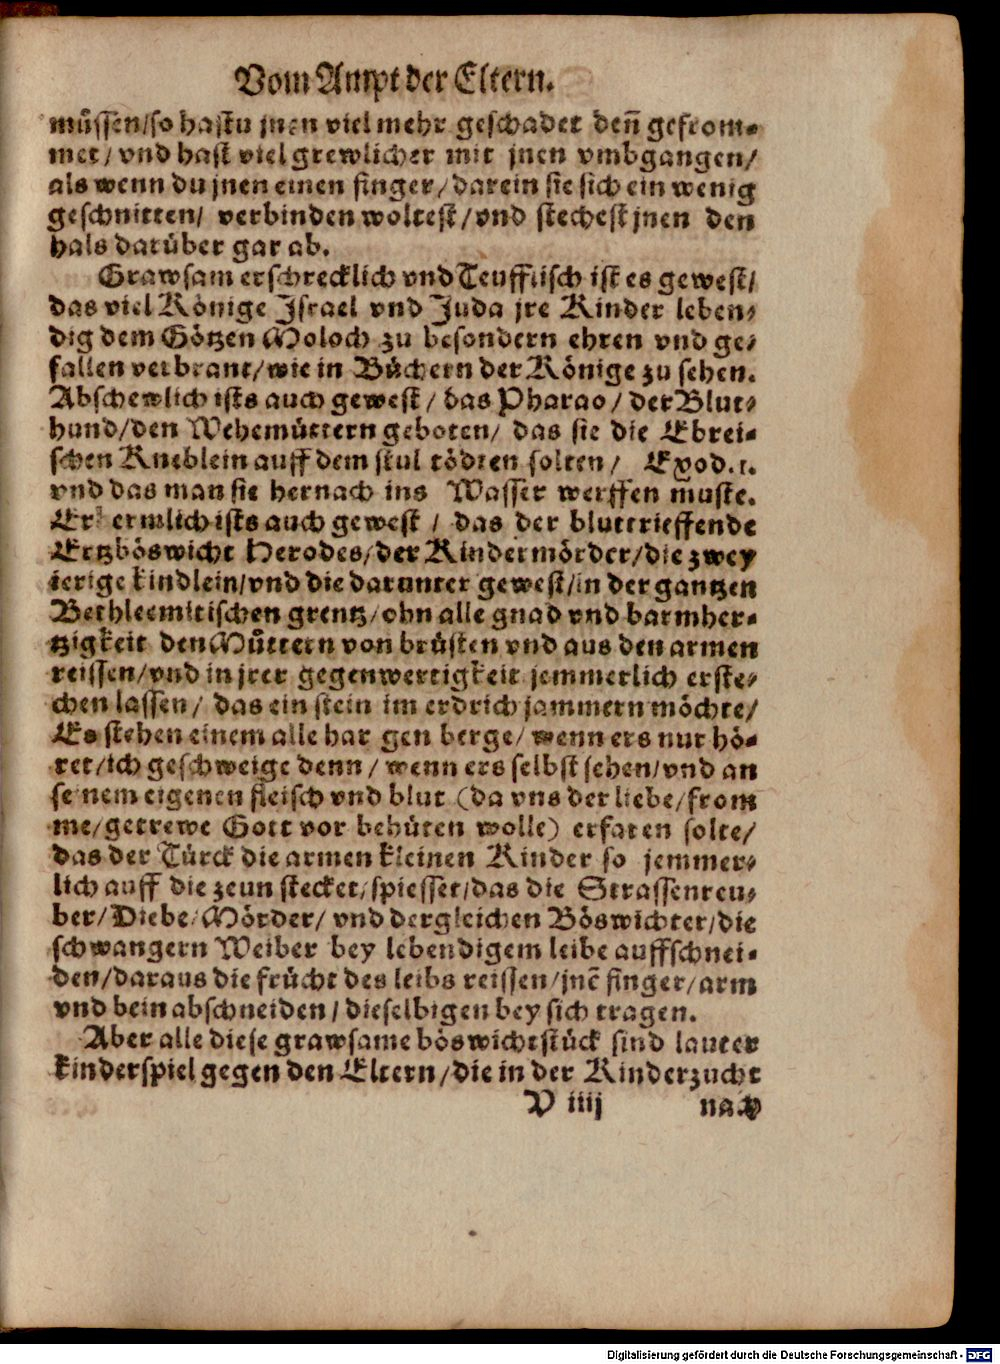 Vom Ampt der Eltern.
müssen/so hastu jnen viel mehr geschadet deñ gefrom-
met/ vnd hast viel grewlicher mit jnen vmbgangen/
als wenn du jnen einen finger/darein sie sich ein wenig
geschnitten/ verbinden woltest/vnd stechest jnen den
hals darüber gar ab.
Grawsam erschrecklich vnd Teufflisch ist es gewest/
das viel Könige Israel vnd Juda jre Kinder leben-
dig dem Götzen Moloch zu besondern ehren vnd ge-
fallen verbrant/wie in Büchern der Könige zu sehen.
Abschewlich ists auch gewest/ das Pharao/ der Blut-
hund/den Wehemüttern geboten/ das sie die Ebrei-
schen Kneblein auff dem stul tödten solten/ Exod.1.
vnd das man sie hernach ins Wasser werffen muste.
Er ermlich ists auch gewest/ das der bluttrieffende
Ertzböswicht Herodes/der Kindermörder/die zwey
ierige kindlein/vnd die darunter gewest/in der gantzen
Bethleemitischen grentz/ohn alle gnad vnd barmher-
tzigkeit den Müttern von brüsten vnd aus den armen
reissen/vnd in jrer gegenwertigkeit jemmerlich erste-
chen lassen/ das ein stein im erdrich jammern möchte/
Es stehen einem alle har gen berge/ wenn ers nur hö-
ret/ich geschweige denn/ wenn ers selbst sehen/vnd an
se nem eigenen fleisch vnd blut (da vns der liebe/from
me/getrewe Gott vor behüten wolle) erfaren solte/
das der Türck die armen kleinen Kinder so jemmer-
lich auff die zeun stecket/spiesset/das die Strassenreu-
ber/Diebe/Mörder/ vnd dergleichen Böswichter/die
schwangern Weiber bey lebendigem leibe auffschnei-
den/daraus die frücht des leibs reissen/jnē finger/arm
vnd bein abschneiden/dieselbigen bey sich tragen.
Aber alle diese grawsame böswichtstück sind lauter
kinderspiel gegen den Eltern/die in der Kinderzucht
V iiij
Digitalisierung gefördert durch die Deutsche Forschungsgemeinschaft - DFG